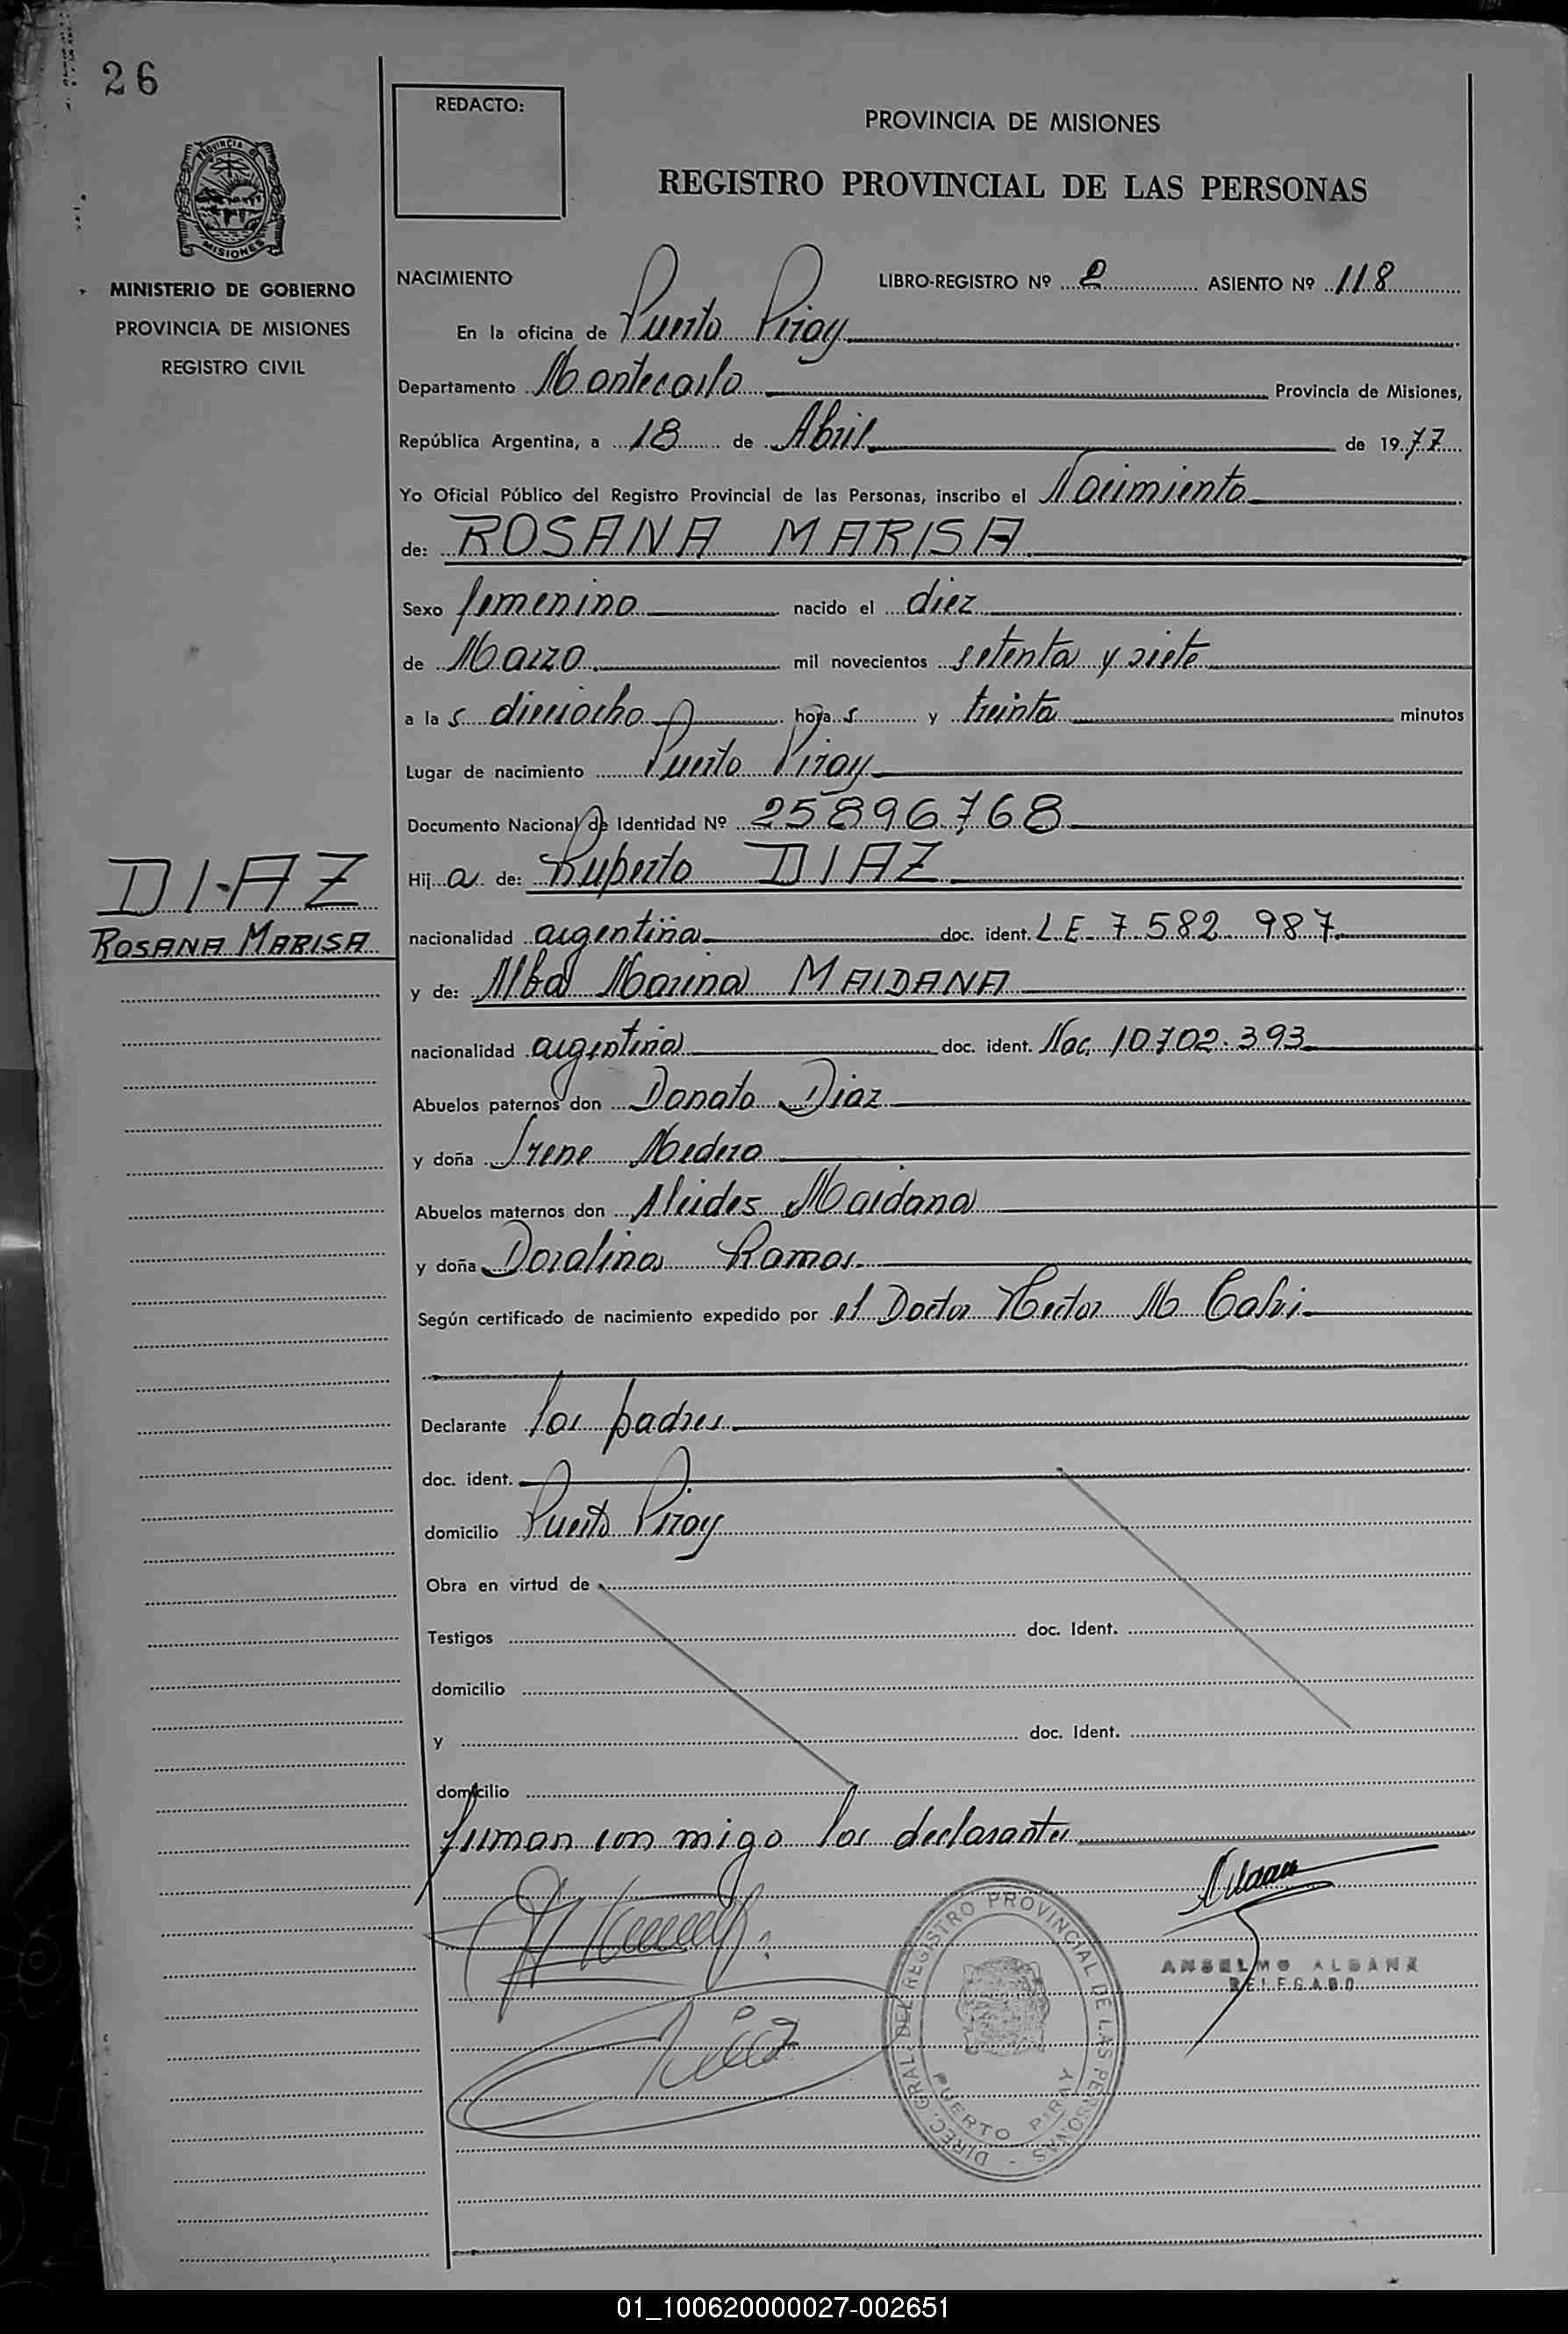 26
REDACTO:
PROVINCIA DE MISIONES
REGISTRO PROVINCIAL DE LAS PERSONAS
PROVINCIA DE
MISIONES
MINISTERIO DE GOBIERNO
PROVINCIA DE MISIONES
REGISTRO CIVIL
NACIMIENTO LIBRO-REGISTRO Nº 2 ASIENTO Nº 118
En la oficina de Puerto Piray
Departamento Montecarlo Provincia de Misiones,
República Argentina, a 18 de Abril de 1977
Yo Oficial Público del Registro Provincial de las Personas, inscribo el Nacimiento
de: ROSANA MARISA
Sexo femenino nacido el diez
de Marzo mil novecientos setenta y siete
a las dieciocho horas y treinta minutos
Lugar de nacimiento Puerto Piray
Documento Nacional de Identidad Nº 25896768
DIAZ
ROSANA MARISA
Hija de: Ruperto DIAZ
nacionalidad argentina doc. ident. L.E 7.582 987
y de: Alba Marina MAIDANA
nacionalidad argentina doc. ident. Nac. 10702.393
Abuelos paternos don Donato Diaz
y doña Irene Medero
Abuelos maternos don Alcides Maidana
y doña Doralina Ramos
Según certificado de nacimiento expedido por el Doctor Hector M
Declarante los padres
doc. ident.
domicilio Puerto Piray
Obra en virtud de
Testigos doc. Ident.
domicilio
y doc. Ident.
domicilio
firman con migo los declarantes
Diaz
DIREC. GRAL. DEL REGISTRO PROVINCIAL DE LAS PERSONAS
PUERTO PIRAY
ANSELMO
DELEGADO
01_100620000027-002651